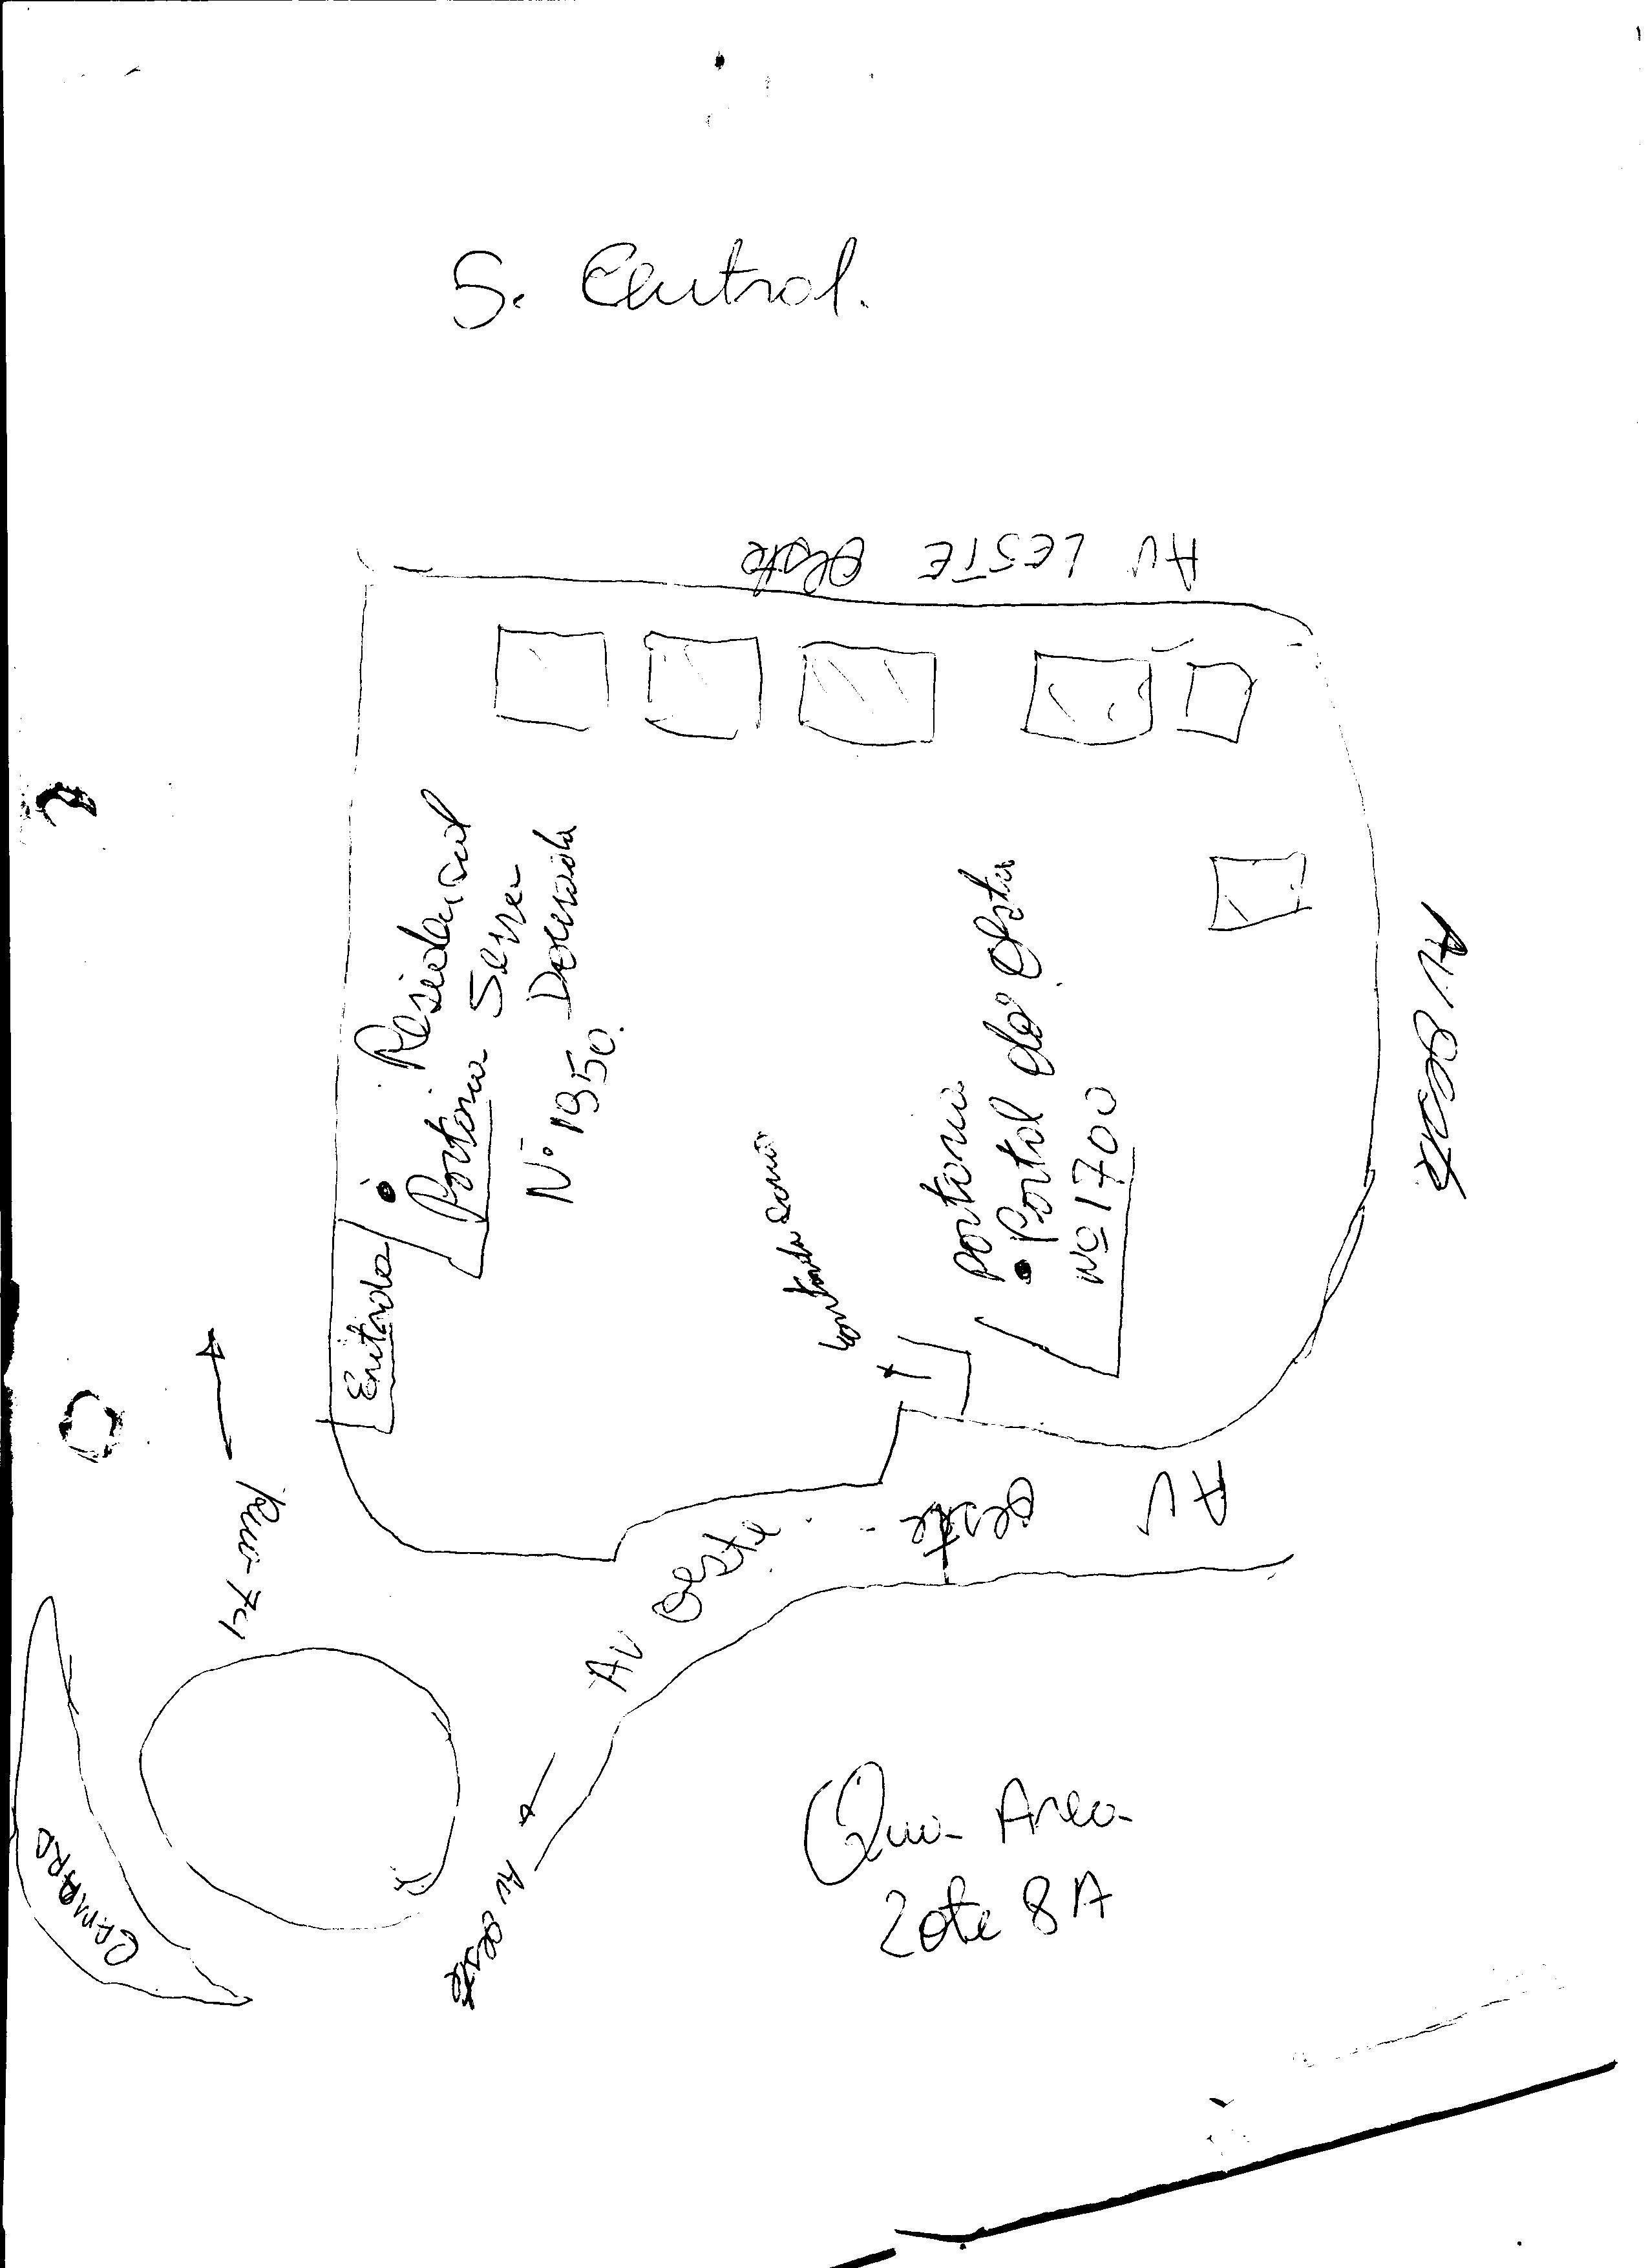 S. Central.
AV LESTE Oeste
Residencial
Portaria Serra
Dourada
Nº 1950.
Entrada
portaria
Portal do Oeste
Nº 1700
AV Oeste
AV
Oeste
AV Oeste
AV Oeste
Rua-74
CAMARO
Qua- Area
Lote 8A